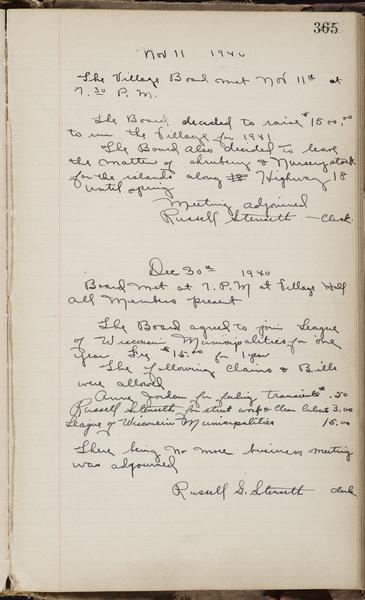 365
Nov 11 1940
The Village Board met Nov 11th at
7.30 P.M.
The Board decided to raise $1500.00
to run the Village for 1941
The Board also decided to leave
the matter of shrubery & Nursery stock
for the islands along 18 Highway 18
until spring
Meeting adjourned
Russell Stenseth - Clerk.
Dec 30th 1940
Board met at 7.P.M at Village Hall
All Members present
The Board agreed to join League
of Wisconsin Municipalities for one
year Fee $15.00 for 1 year
The following Claims & Bills
were allowed
Anna Jordan for feeding transients $.50
Russell Stenseth for street work & Clean 3.00
League of Wisconsin Municipalities 15.00
There being no more business meeting
was adjourned
Russell G. Stenseth clerk